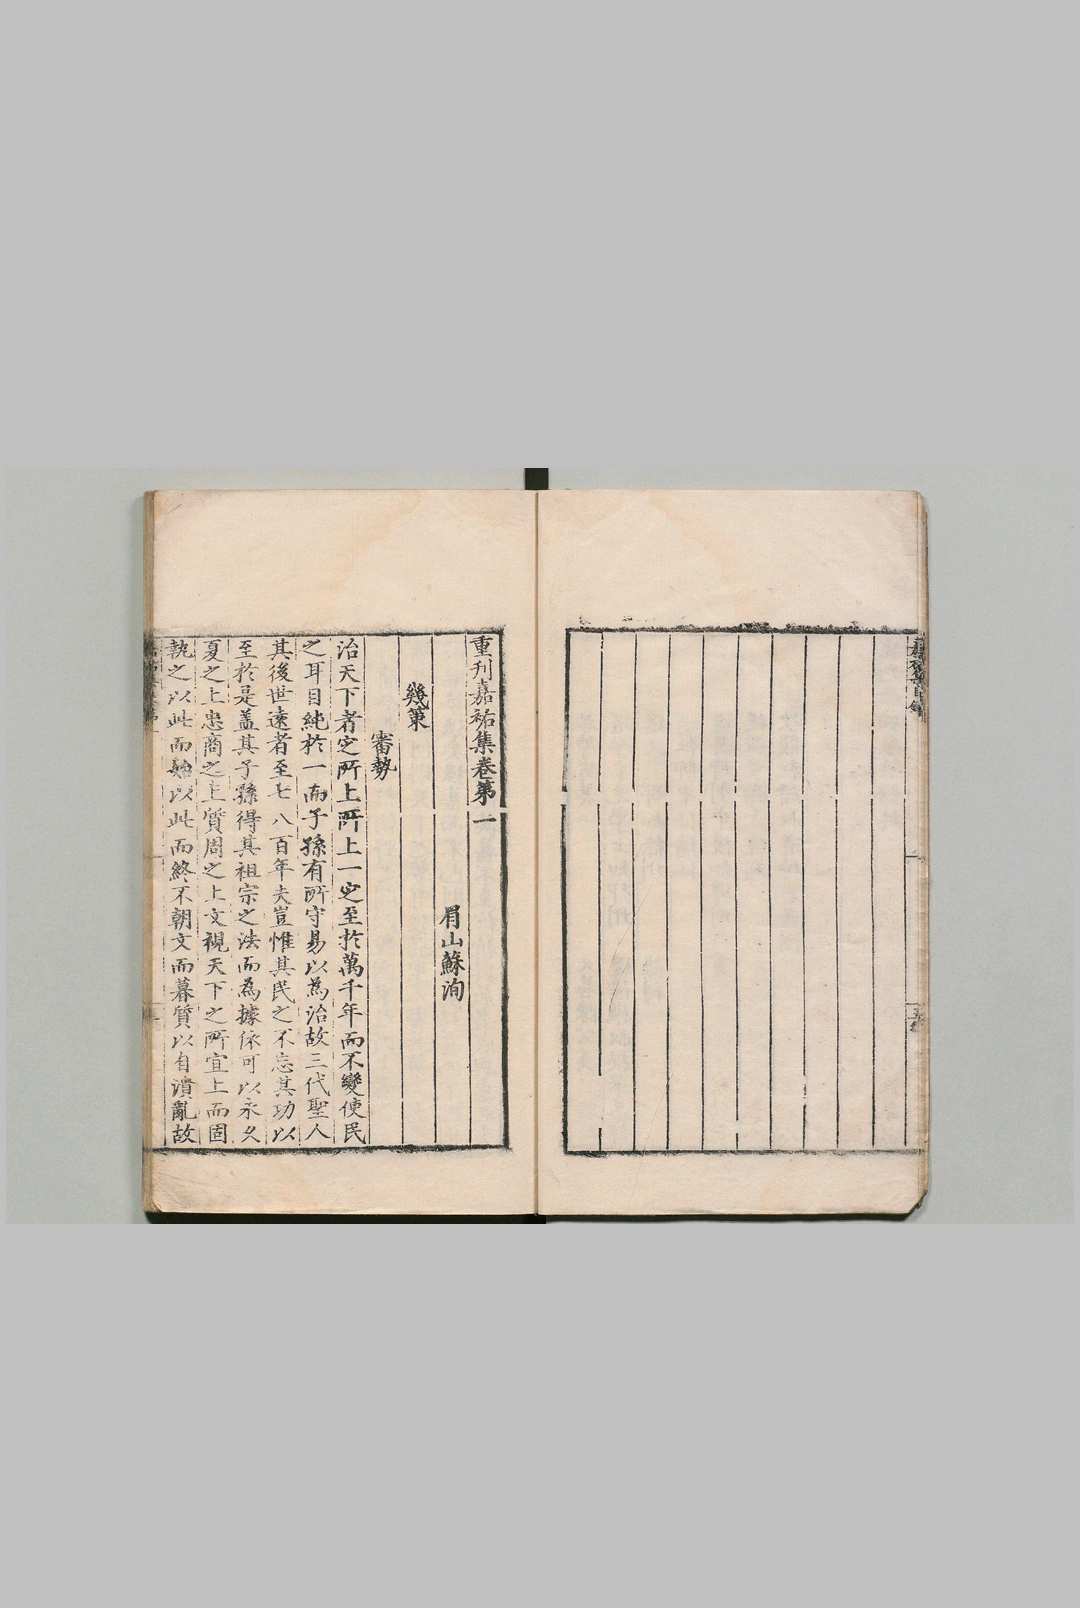 重刊嘉祐集卷第一
眉山蘇洵
幾策
審勢
治天下者定所上所上一定至於萬千年而不變使民
之耳目純於一而子孫有所守易以為治故三代聖人
其後世遠者至七八百年夫豈惟其民之不忘其功以
至於是盖其子孫得其祖宗之法而為據依可以永久
夏之上忠商之上質周之上文視天下之所宜上而固
執之以此而始以此而終不朝文而暮質以自潰亂故